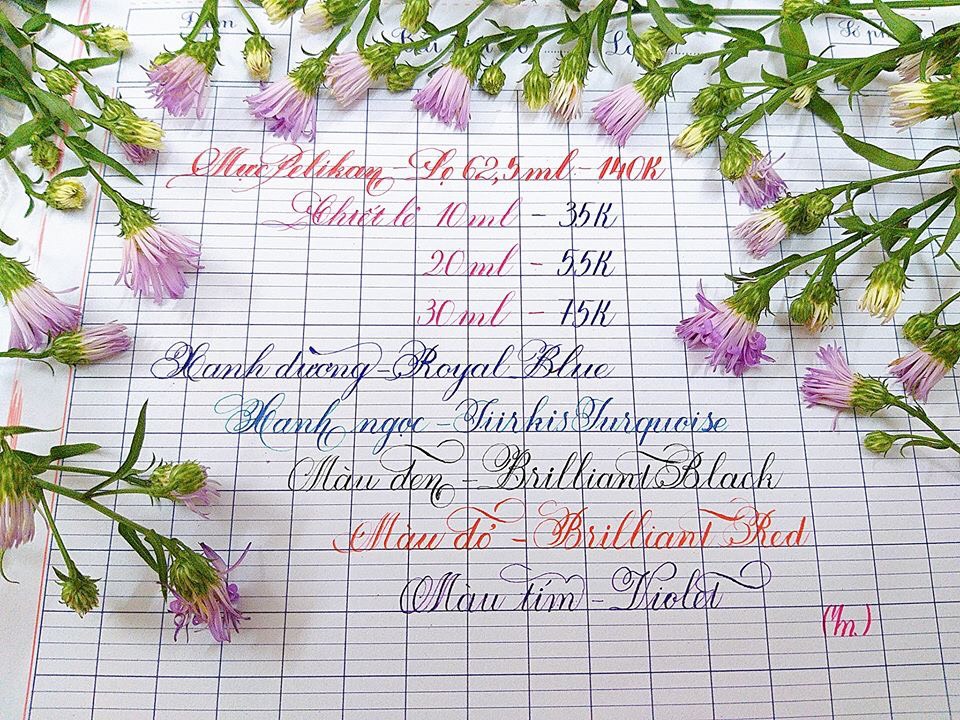 Điểm
Số phá
Mực Pelikan - Lọ 62,5ml - 140K
Chiết lẻ 10ml - 35K
20ml - 55K
30ml - 75K
Xanh dương - Royal Blue
Xanh ngọc - Türkis Turquoise
Màu đen - Brilliant Black
Màu đỏ - Brilliant Red
Màu tím - Violet